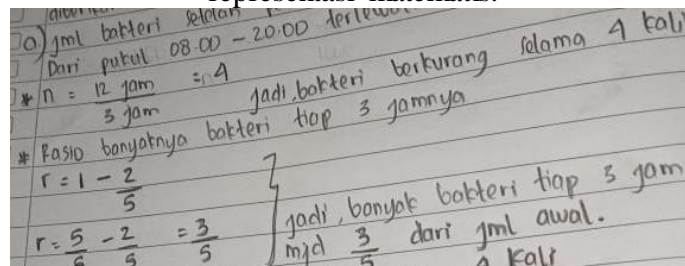 representasi matematis.
a) jml bakteri setelah
Dari pukul 08.00 - 20.00
* n = 12 jam / 3 jam = 4
jadi, bakteri berkurang selama 4 kali
* Rasio banyaknya bakteri tiap 3 jamnya
r = 1 - 2/5
r = 5/5 - 2/5 = 3/5
jadi, banyak bakteri tiap 3 jam
mjd 3/5 dari jml awal.
4 kali